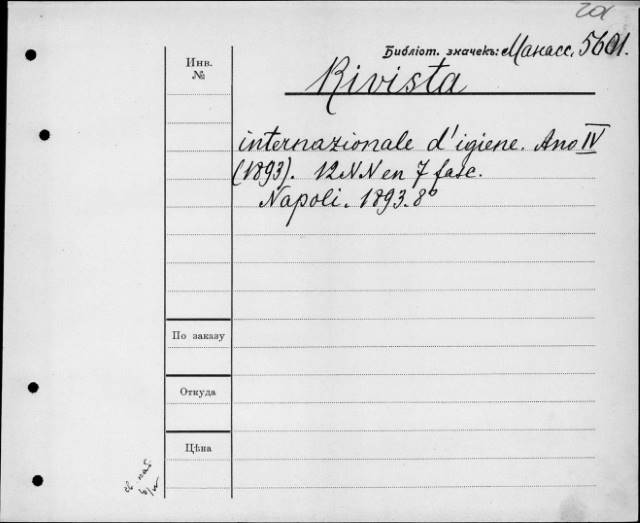 Библіот. значекъ: Манасс. 5601.
Инв.
№
Rivista
internazionale d'igiene. Ano IV
(1893). 12 NN en 7 fasc.
Napoli. 1893. 8°
По заказу
Откуда
Цѣна